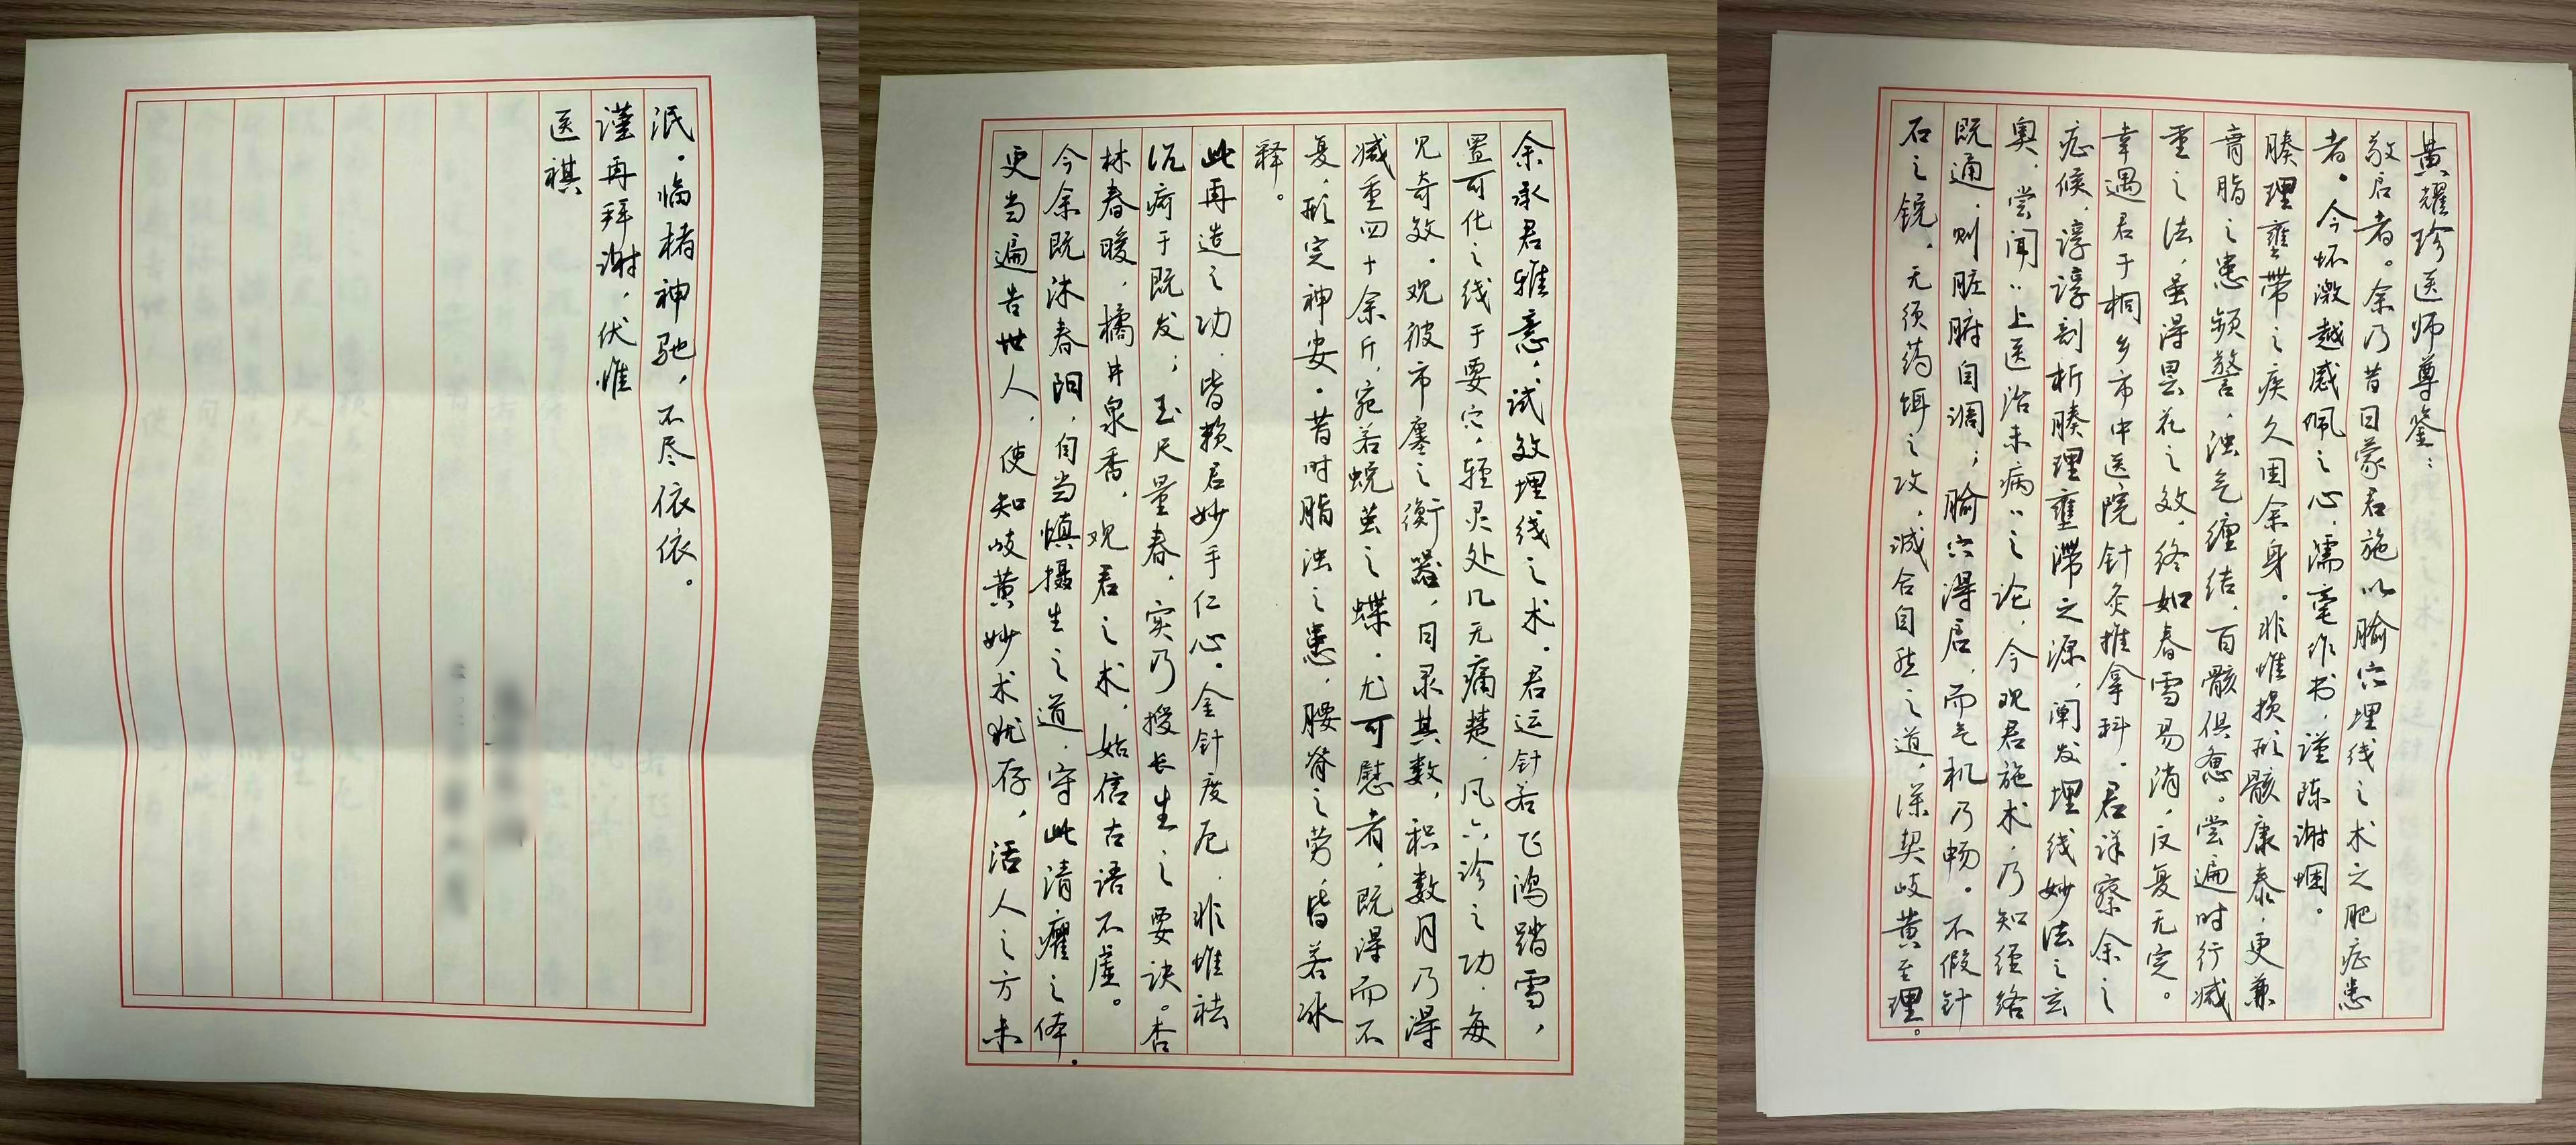 黄耀珍医师尊鉴：
敬启者。余乃昔日蒙君施以腧穴埋线之术之肥症患
者。今怀激越感佩之心，濡毫作书，谨陈谢悃。
腠理壅滞之疾久困余身。非惟损形骸康泰，更兼
膏脂之患频警，浊气缠结，百骸俱惫。尝遍时行减
重之法，虽得昙花之效，终如春雪易消，反复无定。
幸遇君于桐乡市中医院针灸推拿科。君详察余之
症候，谆谆剖析腠理壅滞之源，阐发埋线妙法之玄
奥，尝闻“上医治未病”之论，今观君施术，乃知经络
既通，则脏腑自调；腧穴得启，而气机乃畅。不假针
石之锐，无须药饵之攻，诚合自然之道，深契岐黄至理。
余承君雅意，试效埋线之术。君运针若飞鸿踏雪，
置可化之线于要穴，轻灵处几无痛楚，凡六诊之功，每
见奇效。观彼市廛之衡器，日录其数，积数月乃得
减重四十余斤，宛若蜕茧之蝶。尤可慰者，既得而不
复，形完神安。昔时脂浊之患，腰脊之劳，皆若冰
释。
此再造之功，皆赖君妙手仁心。金针度厄，非惟祛
沉疴于既发；玉尺量春，实乃授长生之要诀。杏
林春暖，橘井泉香，观君之术，始信古语不虚。
今余既沐春阳，自当慎摄生之道，守此清癯之体。
更当遍告世人，使知岐黄妙术犹存，活人之方未
泯。临楮神驰，不尽依依。
谨再拜谢，伏惟
医祺